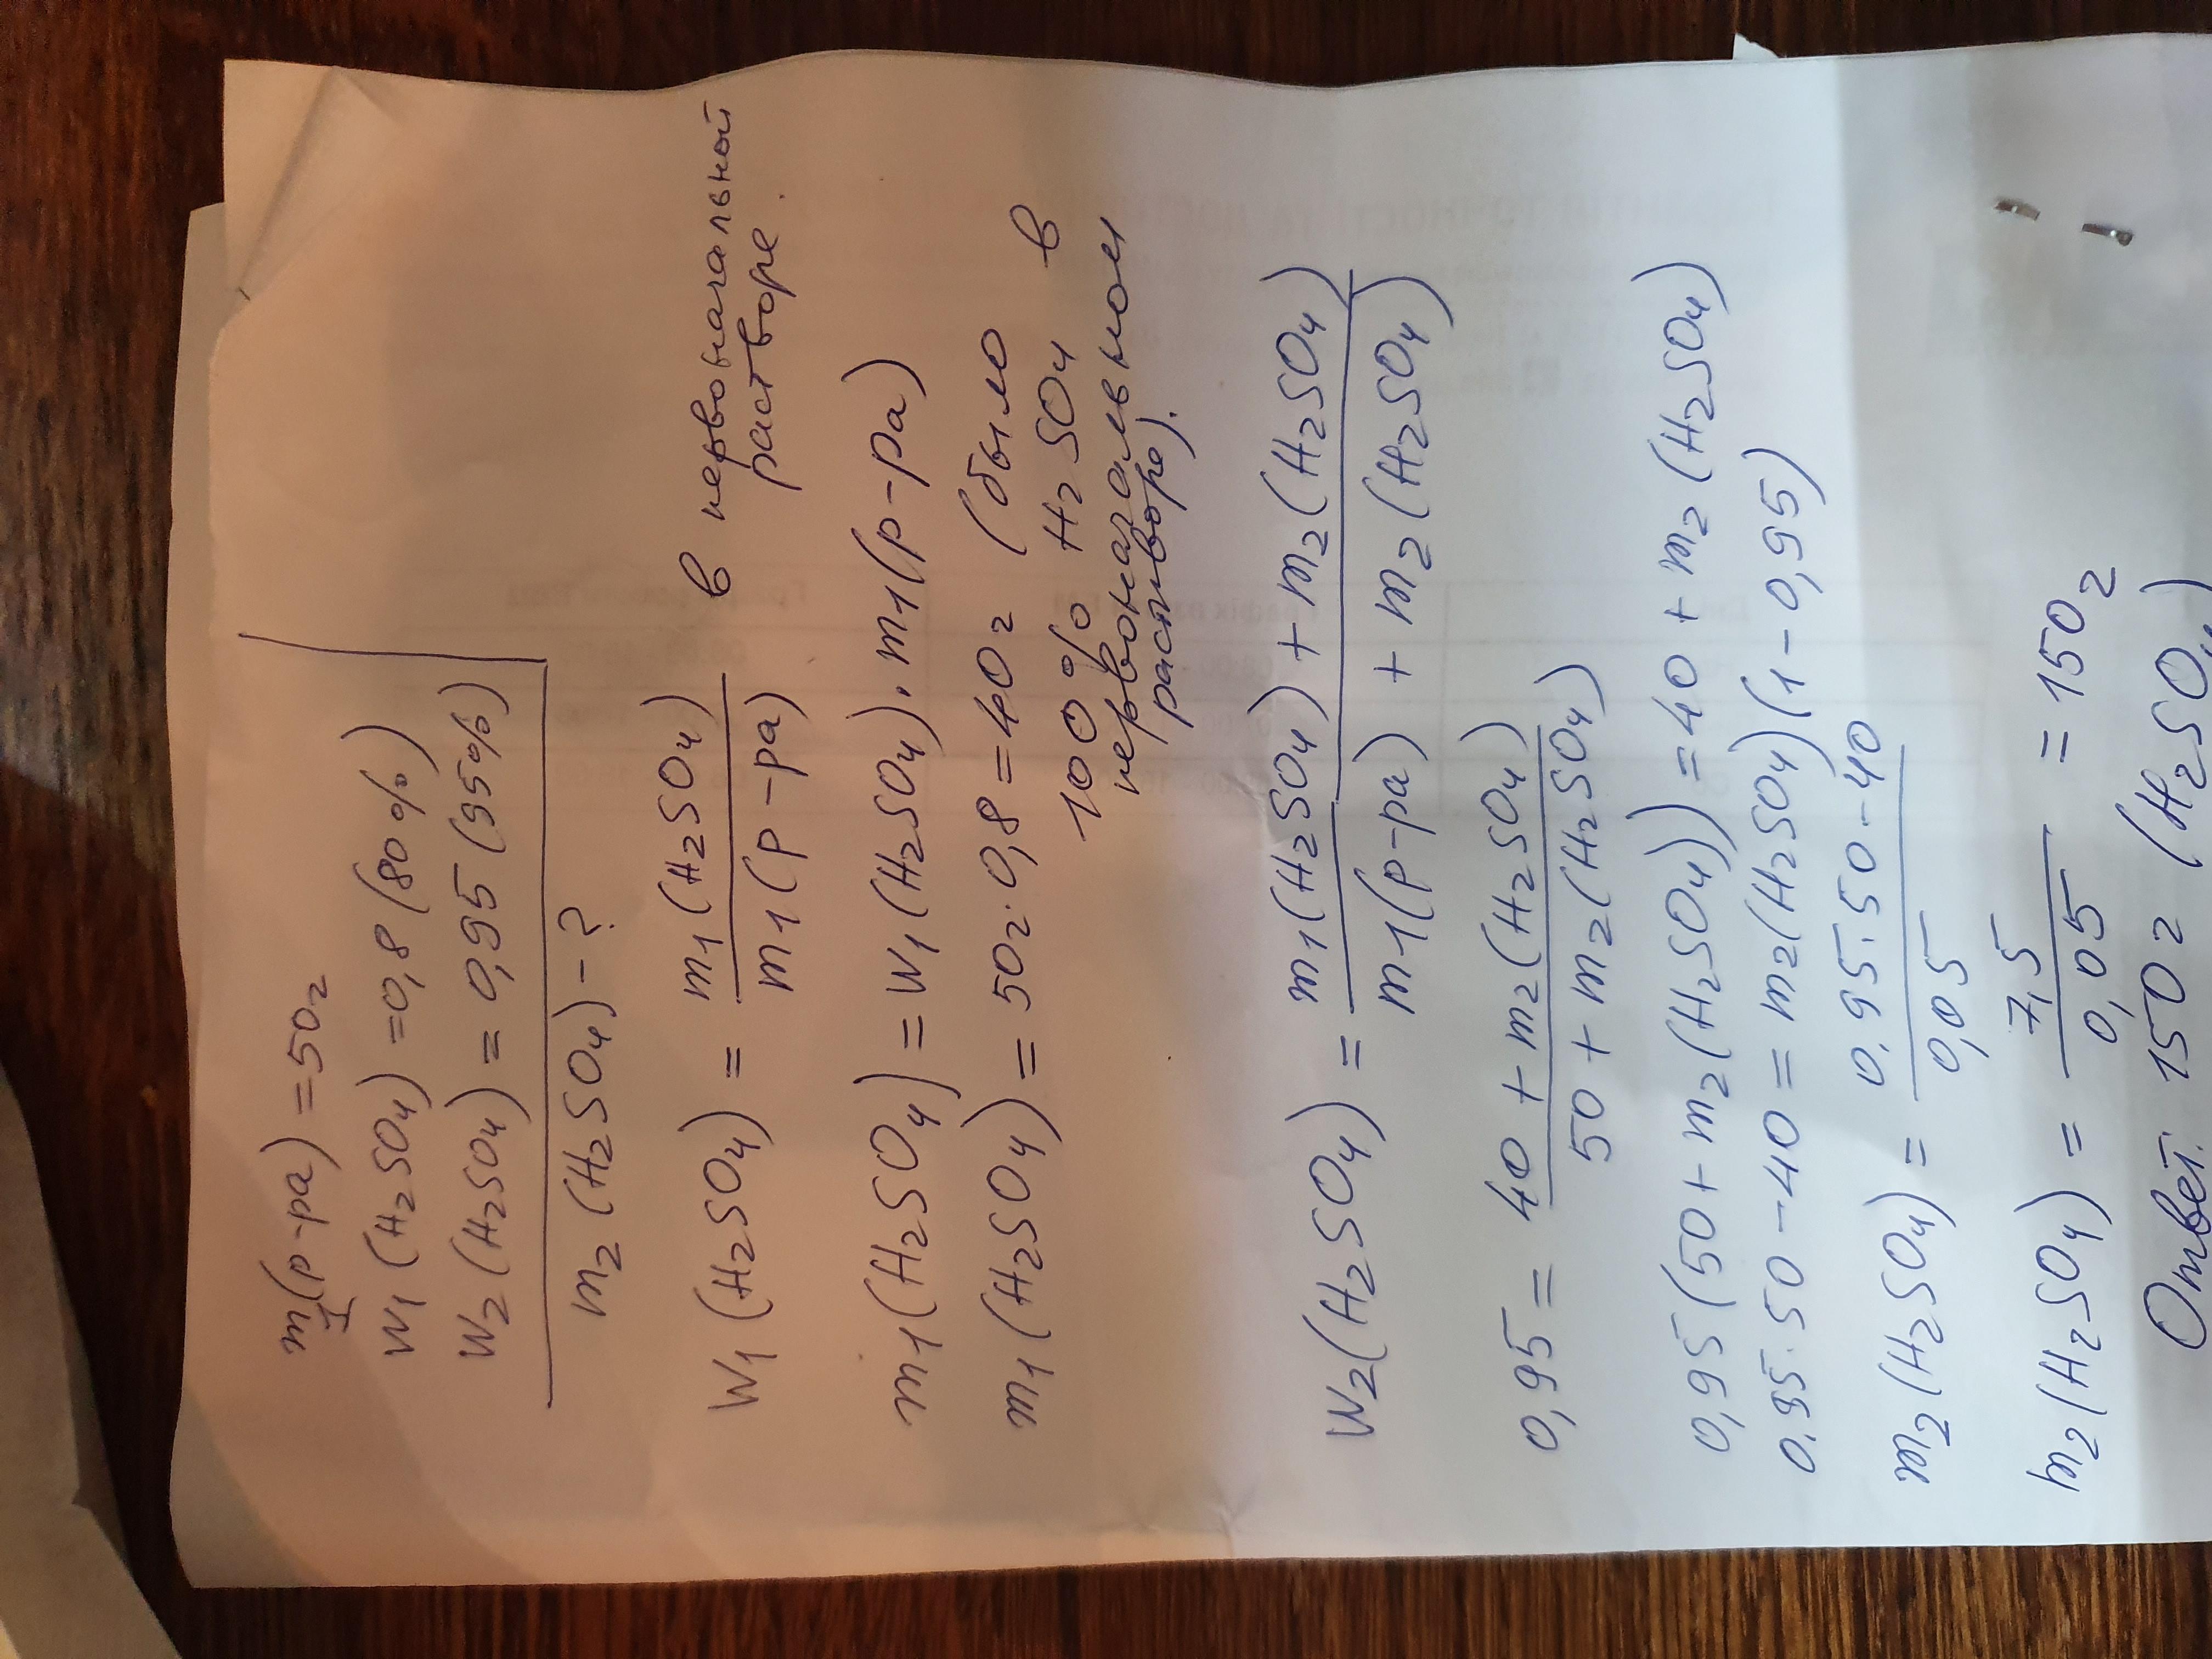 m₁(р-ра) = 50г
W₁(H₂SO₄) = 0,8 (80%)
W₂(H₂SO₄) = 0,95 (95%)
m₂(H₂SO₄) - ?
W₁(H₂SO₄) = m₁(H₂SO₄) / m₁(р-ра) в первоначальной растворе.
m₁(H₂SO₄) = W₁(H₂SO₄) · m₁(р-ра)
m₁(H₂SO₄) = 50г · 0,8 = 40г (было
100% H₂SO₄ в
первоначальном
растворе).
W₂(H₂SO₄) = m₁(H₂SO₄) + m₂(H₂SO₄) / m₁(р-ра) + m₂(H₂SO₄)
0,95 = 40 + m₂(H₂SO₄) / 50 + m₂(H₂SO₄)
0,95(50 + m₂(H₂SO₄)) = 40 + m₂(H₂SO₄)
0,95·50 - 40 = m₂(H₂SO₄)(1 - 0,95)
m₂(H₂SO₄) = 0,95·50 - 40 / 0,05
m₂(H₂SO₄) = 7,5 / 0,05 = 150г
Ответ: 150г (H₂SO₄)